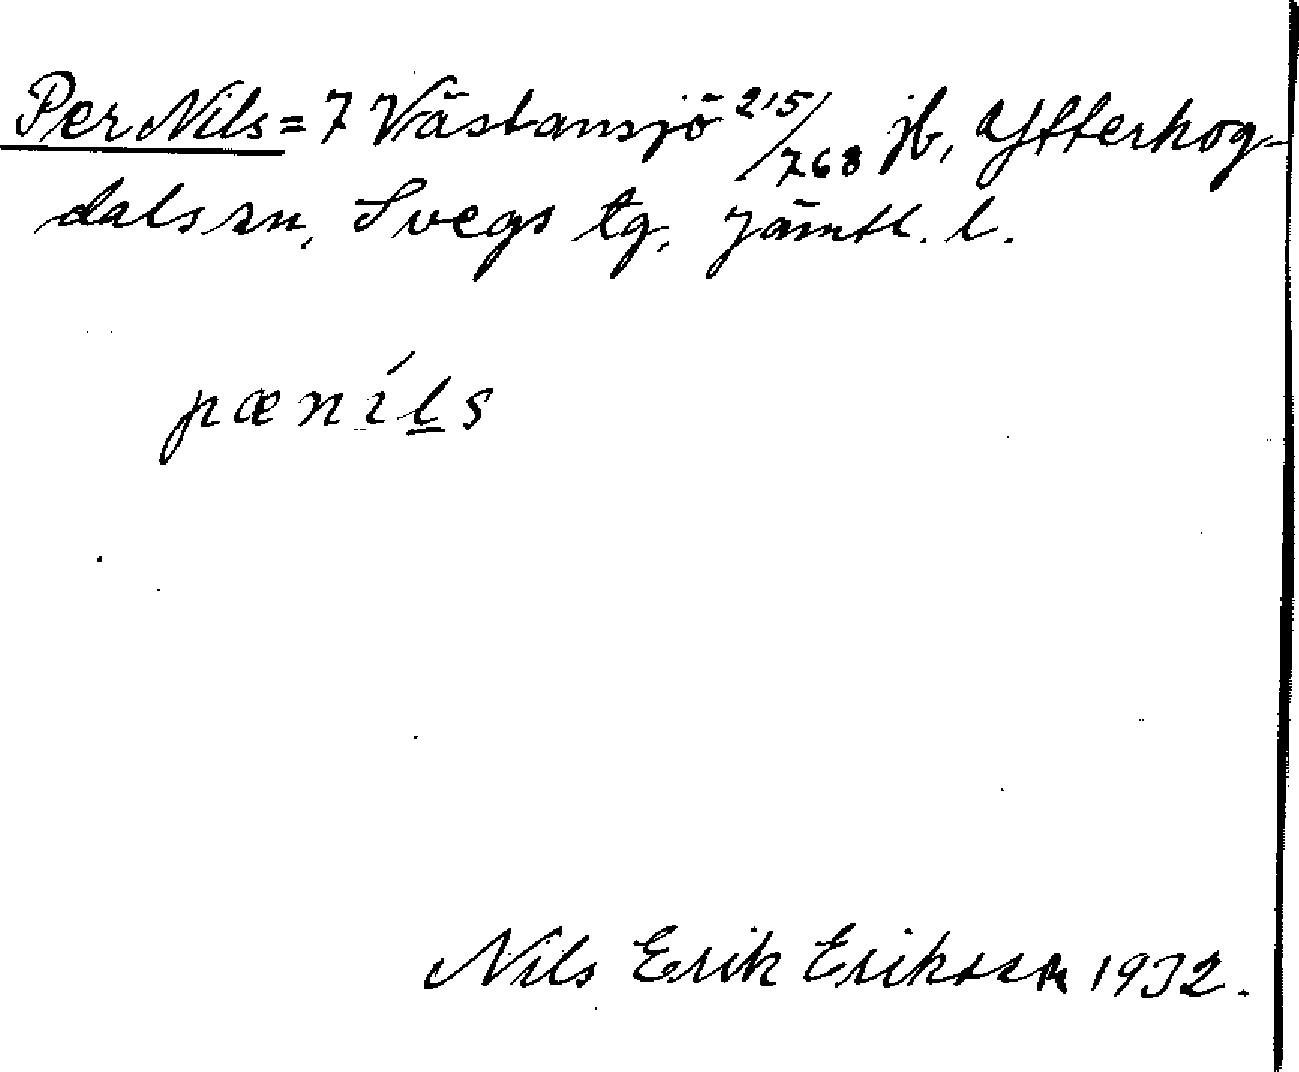 Per Nils = 7 Västansjö 215/768 jb, Ytterhog-
dals sn, Svegs tg, Jämtl. l.
pæníl̲s
Nils Erik Eriksson 1932.